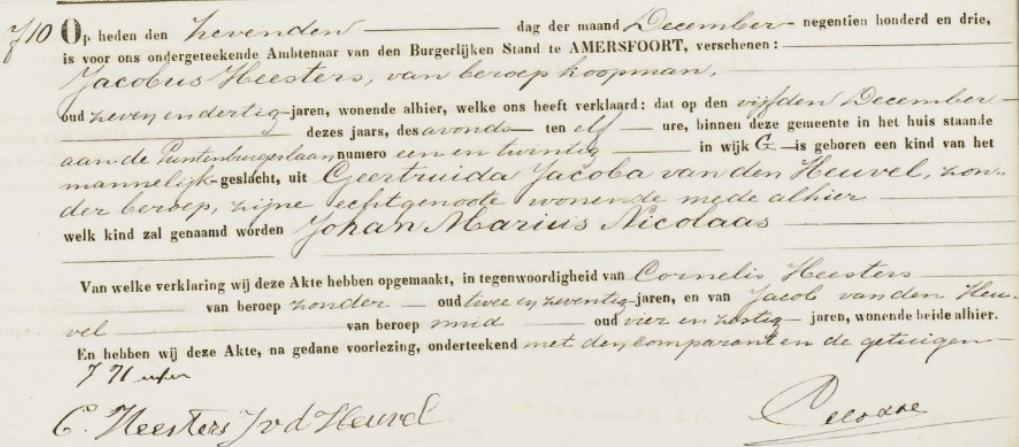 710 Op heden den zevenden dag der maand December negentien honderd en drie,
is voor ons ondergeteekende Ambtenaar van den Burgerlijken Stand te AMERSFOORT, verschenen:
Jacobus Heesters, van beroep koopman,
oud zeven en dertig jaren, wonende alhier, welke ons heeft verklaard: dat op den vijfden December
dezes jaars, des avonds ten elf ure, binnen deze gemeente in het huis staande
aan de Puntenburgerlaan numero een en twintig in wijk G is geboren een kind van het
mannelijk geslacht, uit Geertruida Jacoba van den Heuvel, zon-
der beroep, zijne echtgenoote wonende mede alhier
welk kind zal genaamd worden Johan Marius Nicolaas
Van welke verklaring wij deze Akte hebben opgemaakt, in tegenwoordigheid van Cornelis Heesters
van beroep zonder oud twee en zeventig jaren, en van Jacob van den Heu-
vel van beroep smid oud vier en zestig jaren, wonende beide alhier.
En hebben wij deze Akte, na gedane voorlezing, onderteekend met den comparant en de getuigen
C. Heesters J v d Heuvel